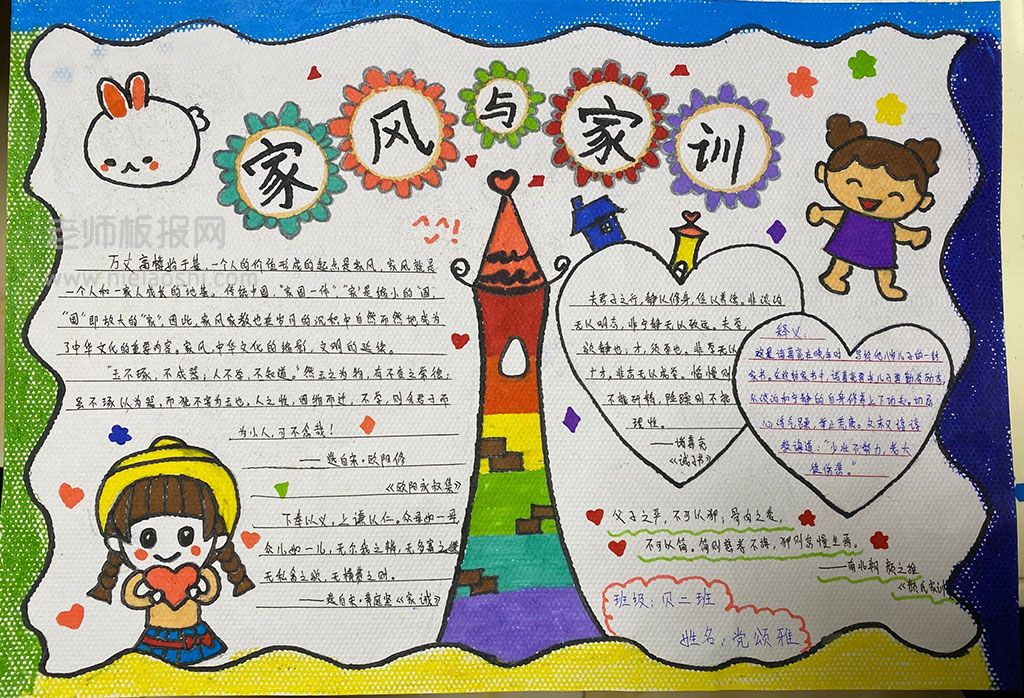 家风与家训
老师板报网
万丈高楼始于基，一个人的价值形成的起点是家风，家风就是
一个人和一家人成长的"地基。传统中国，"家国一体"，"家"是缩小的"国"，
"国"即放大的"家"，因此，家风家教也在岁月的沉积中自然而然地成为
了中华文化的重要内容。家风，中华文化的缩影，文明的延续。
"玉不琢，不成器；人不学，不知道。"然玉之为物，有不变之常德，
虽不琢以为器，而犹不害为玉也，人之性，因物而迁，不学，则舍君子而
为小人，可不念哉！
——选自宋·欧阳修
《欧阳永叔集》
下奉以义，上谦以仁。众母如一母，
众儿如一儿，无尔我之辨，无多寡之嫌
无私贪之欲，无横费之财。
——选自宋·黄庭坚《家诫》
夫君子之行，静以修身，俭以养德。非淡泊
无以明志，非宁静无以致远。夫学，
欲静也；才，须学也。非学无以
广才。非志无以成学。慆慢则
不能研精，险躁则不能
理性。
——诸葛亮
《诫子书》
释义：
这是诸葛亮去晚年时
写给他八岁儿子的一封
家书。在这封家书中，诸葛亮要求儿子要勤学励志，
从淡泊和宁静的自身修养上下功夫。切忌
心浮气躁，举止荒唐。文末又谆谆
教诲道："少壮不努力，老大
徒伤悲。"
父子之严，不可以狎；骨肉之爱，
不可以简。简则慈孝不接，狎则怠慢生焉。
——南北朝 颜之推
《颜氏家训》
班级：贝二班
姓名：党颂雅